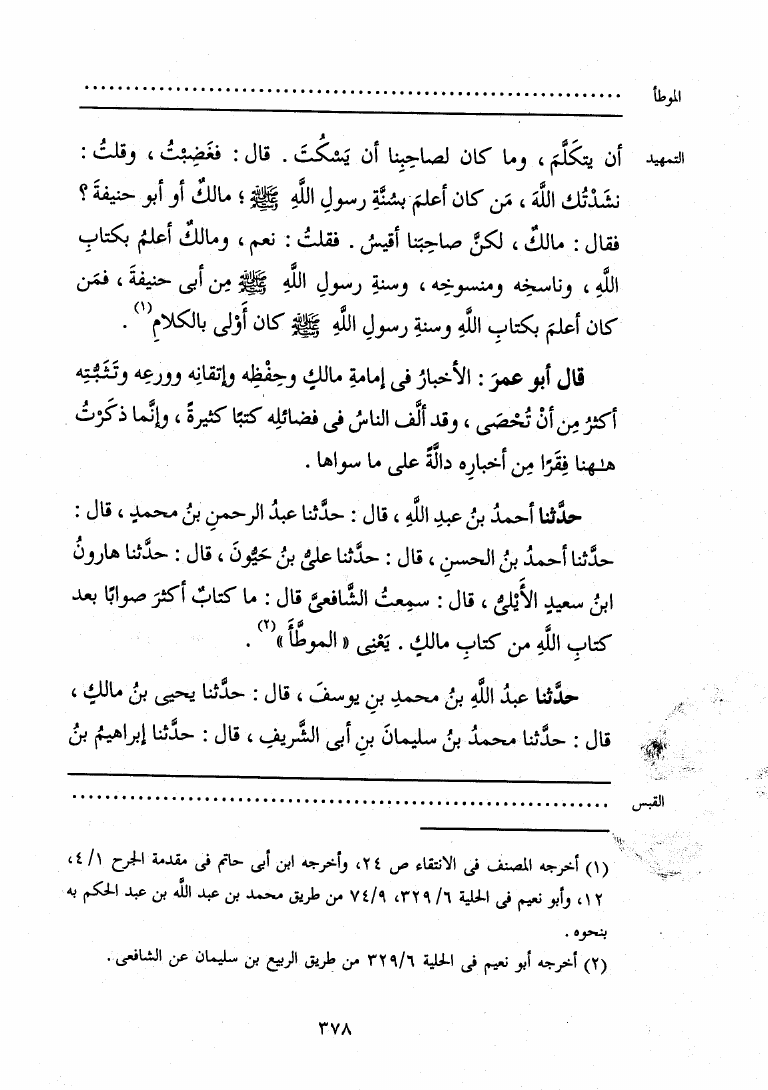 الموطأ ................................................................
التمهيد أن يتكَلَّمَ ، وما كان لصاحبِنا أن يَسْكُتَ . قال : فغَضِبْتُ ، وقلتُ :
نشَدْتُك اللَّهَ ، مَن كان أعلمَ بسُنَّةِ رسولِ اللَّهِ ﷺ ؛ مالكٌ أو أبو حنيفةَ ؟
فقال : مالكٌ ، لكنَّ صاحِبَنا أقيسُ . فقلتُ : نعم ، ومالكٌ أعلمُ بكتابِ
اللَّهِ ، وناسخِه ومنسوخِه ، وسنةِ رسولِ اللَّهِ ﷺ مِن أبى حنيفةَ ، فمَن
كان أعلمَ بكتابِ اللَّهِ وسنةِ رسولِ اللَّهِ ﷺ كان أَوْلى بالكلامِ(١) .
قال أبو عمرَ : الأخبارُ فى إمامةِ مالكٍ وحِفْظِه وإتقانِه وورعِه وتَثَبُّتِه
أكثرُ مِن أنْ تُحْصَى ، وقد ألَّف الناسُ فى فضائلِه كتبًا كثيرةً ، وإنَّما ذكَرْتُ
هلهنا فِقَرًا مِن أخبارِه دالَّةً على ما سواها .
حدَّثنا أحمدُ بنُ عبدِ اللَّهِ ، قال : حدَّثنا عبدُ الرحمنِ بنُ محمدٍ ، قال :
حدَّثنا أحمدُ بنُ الحسنِ ، قال : حدَّثنا علىُّ بنُ حَيُّونَ ، قال : حدَّثنا هارونُ
ابنُ سعيدٍ الأَيْلىُّ ، قال : سمِعتُ الشَّافعىَّ قال : ما كتابٌ أكثرَ صوابًا بعد
كتابِ اللَّهِ من كتابِ مالكٍ . يَعْنِى « الموطَّأَ »(٢) .
حدَّثنا عبدُ اللَّهِ بنُ محمدِ بنِ يوسفَ ، قال : حدَّثنا يحيى بنُ مالكٍ ،
قال : حدَّثنا محمدُ بنُ سليمانَ بنِ أبى الشَّريفِ ، قال : حدَّثنا إبراهيمُ بنُ
القبس ................................................................
(١) أخرجه المصنف فى الانتقاء ص ٢٤، وأخرجه ابن أبى حاتم فى مقدمة الجرح ٤/١،
١٢، وأبو نعيم فى الحلية ٣٢٩/٦، ٧٤/٩ من طريق محمد بن عبد اللَّه بن عبد الحكم به
بنحوه .
(٢) أخرجه أبو نعيم فى الحلية ٣٢٩/٦ من طريق الربيع بن سليمان عن الشافعى .
٣٧٨